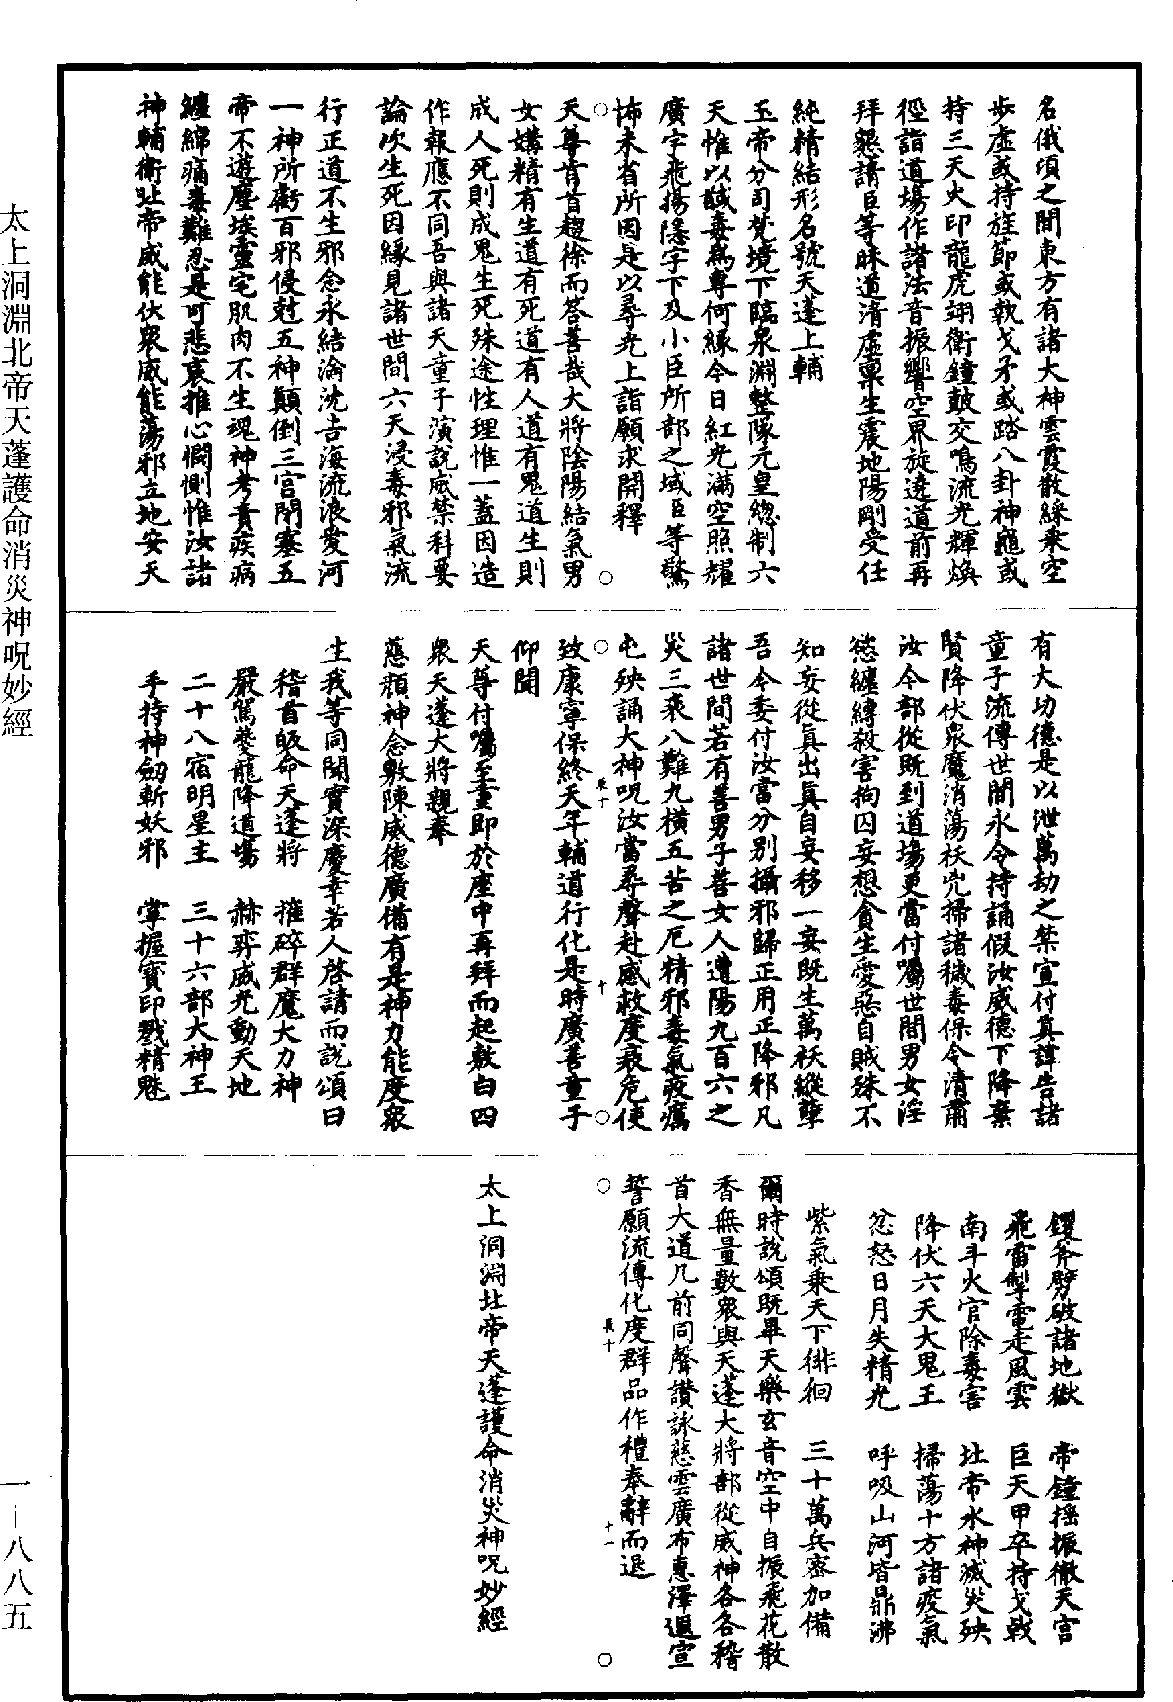 名俄頃之間東方有諸大神雲霞散綵乘空
步虛或持旌節或執戈矛或踏八卦神龜或
持三天火印龍虎翊衛鐘鼓交鳴流光輝煥
徑詣道場作諸法音振響空界旋遶道前再
拜懇請臣等昧道清虛稟生震地陽剛受任
純精結形名號天蓬上輔
玉帝分司梵境下臨泉淵整隊元皇總制六
天惟以誠毒爲尊何緣今日紅光滿空照耀
廣宇飛揚隱字下及小臣所部之域臣等驚
怖未省所因是以尋光上詣願求開釋
天尊肯首趨徐而答善哉大將陰陽結氣男
女媾精有生道有死道有人道有鬼道生則
成人死則成鬼生死殊途性理惟一蓋因造
作報應不同吾與諸天童子演說威禁科要
論次生死因緣見諸世間六天浸毒邪氣流
行正道不生邪念永結淪沈苦海流浪愛河
一神所衝百邪侵尅五神顛倒三宮閉塞五
帝不遊塵埃靈宅肌肉不生魂神考責疾病
纏綿痛毒難忍是可悲哀推心憫惻惟汝諸
神輔衛北帝威能伏衆威能蕩邪立地安天
有大功德是以泄萬劫之禁宣付真諱告諸
童子流傳世間永令持誦假汝威德下降棄
賢降伏衆魔消蕩祅兇掃諸穢毒保令清肅
汝今部從既到道場更當付囑世間男女淫
慾纏縛殺害拘囚妄想貪生愛惡自賊殊不
知妄從眞出眞自妄移一妄既生萬祅縱孽
吾今委付汝當分別攝邪歸正用正降邪凡
諸世間若有善男子善女人遭陽九百六之
災三衰八難九橫五苦之厄精邪毒氣疫癘
屯殃誦大神呪汝當尋聲赴感救度衰危使
致康寧保終天年輔道行化是時廣善童子
仰聞
天尊付囑至重即於座中再拜而起敷白四
衆天蓬大將親奉
慈顏神念敷陳威德廣備有是神力能度衆
生我等同聞實深慶幸若人啓請而說頌曰
稽首皈命天蓬將　摧碎群魔大力神
嚴駕夔龍降道場　赫弈威光動天地
二十八宿明星主　三十六部大神王
手持神劒斬妖邪　掌握寶印戮精魅
鑊斧劈破諸地獄　帝鐘搖振徹天宮
飛雷掣電走風雲　巨天甲卒持戈戟
南斗火官除毒害　北帝水神滅災殃
降伏六天大鬼王　掃蕩十方諸疫氣
忿怒日月失精光　呼吸山河皆鼎沸
紫氣乘天下徘徊　三十萬兵密加備
爾時說頌既畢天樂玄音空中自振飛花散
香無量數衆與天蓬大將部從威神各各稽
首大道几前同聲讚詠慈雲廣布惠澤遐宣
誓願流傳化度群品作禮奉辭而退
太上洞淵北帝天蓬護命消災神呪妙經
太上洞淵北帝天蓬護命消災神呪妙經
一—八八五